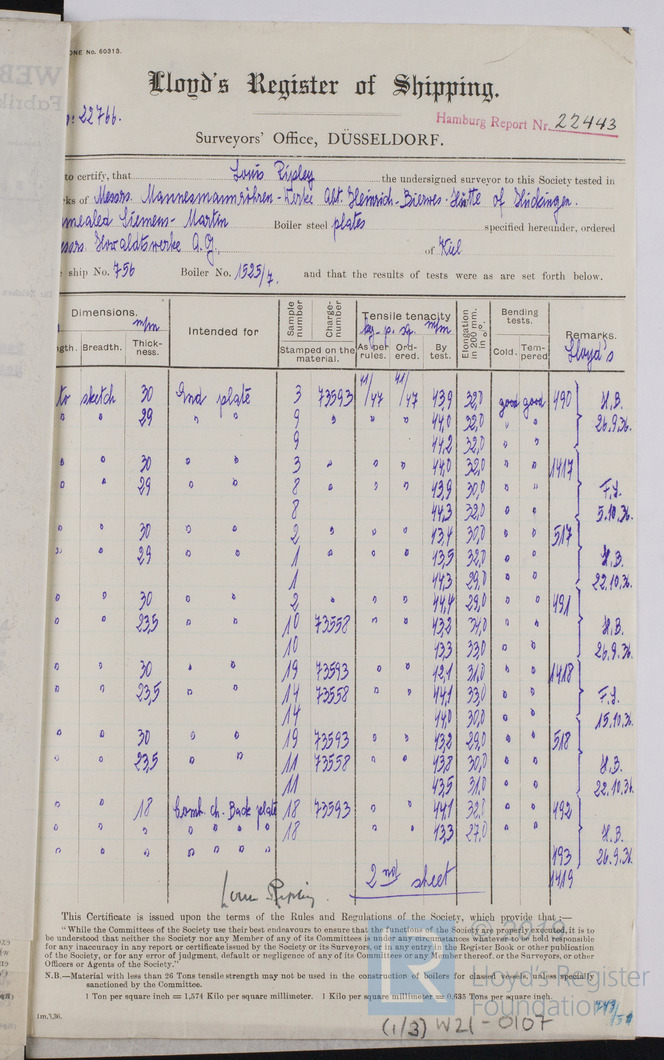 ONE No. 60313.
Lloyd's Register of Shipping.
22766.
Hamburg Report Nr. 22443
Surveyors' Office, DÜSSELDORF.
to certify, that Louis Ripley the undersigned surveyor to this Society tested in
ks of Messrs. Mannesmannröhren-Werke Abt. Heinrich-Bierwes-Hütte of Huckingen.
nnealed Siemens-Martin Boiler steel plates specified hereunder, ordered
ssrs. Howaldtswerke A.G., of Kiel
ship No. 756 Boiler No. 1525/7. and that the results of tests were as are set forth below.
Dimensions. m/m Intended for Sample number Charge-number Tensile tenacity kg. p. sq. m/m Elongation in 200 mm. in %. Bending tests. Remarks.
ngth. Breadth. Thick-ness. Stamped on the material. As per rules. Ord-ered. By test. Cold. Tem-pered Lloyd's
to sketch 30 End plate 3 73593 41/47 41/47 43,9 32,0 good good 490 H.B.
" " 29 " " 9 " " " 44,0 32,0 " " 26.9.36.
9 44,2 32,0 " "
" " 30 " " 3 " " " 44,0 32,0 " " 1417
" " 29 " " 8 " " " 43,9 30,0 " " F.J.
8 44,3 32,0 " " 5.10.36.
" " 30 " " 2 " " " 43,4 30,0 " " 517
" " 29 " " 1 " " " 43,5 32,0 " " H.B.
1 44,3 29,0 " " 22.10.36.
" " 30 " " 2 " " " 44,4 29,0 " " 491
" " 23,5 " " 10 73558 " " 43,2 31,0 " " H.B.
10 43,3 33,0 " " 26.9.36.
" " 30 " " 19 73593 " " 42,1 31,0 " " 1418
" " 23,5 " " 14 73558 " " 44,1 33,0 " " F.J.
14 44,0 30,0 " " 15.10.36.
" " 30 " " 19 73593 " " 43,2 29,0 " " 518
" " 23,5 " " 11 73558 " " 43,8 30,0 " " H.B.
11 43,5 31,0 " " 22.10.36.
" " 18 Comb. ch. Back plate 18 73593 " " 44,1 32,0 " " 492
" " " " " " " 18 " " 43,3 27,0 " " H.B.
" " " " " " " 493 26.9.36.
2nd sheet 1419
Louis Ripley.
This Certificate is issued upon the terms of the Rules and Regulations of the Society, which provide that:—
"While the Committees of the Society use their best endeavours to ensure that the functions of the Society are properly executed, it is to
be understood that neither the Society nor any Member of any of its Committees is under any circumstances whatever to be held responsible
for any inaccuracy in any report or certificate issued by the Society or its Surveyors, or in any entry in the Register Book or other publication
of the Society, or for any error of judgment, default or negligence of any of its Committees or any Member thereof, or the Surveyors, or other
Officers or Agents of the Society."
N.B.—Material with less than 26 Tons tensile strength may not be used in the construction of boilers for classed vessels, unless specially
sanctioned by the Committee.
1 Ton per square inch = 1,574 Kilo per square millimetre. 1 Kilo per square millimetre = 0,635 Tons per square inch.
1m.,5,36.
LR
Lloyd's Register
Foundation
(1/3) W21-0107